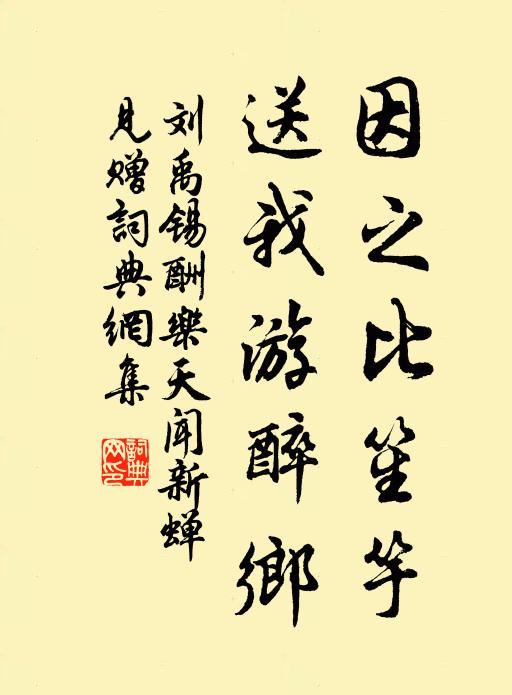 因之比笙竽
送我游醉鄉
刘禹锡酬樂天闻新蝉
見赠詞典網集
詞典
网印